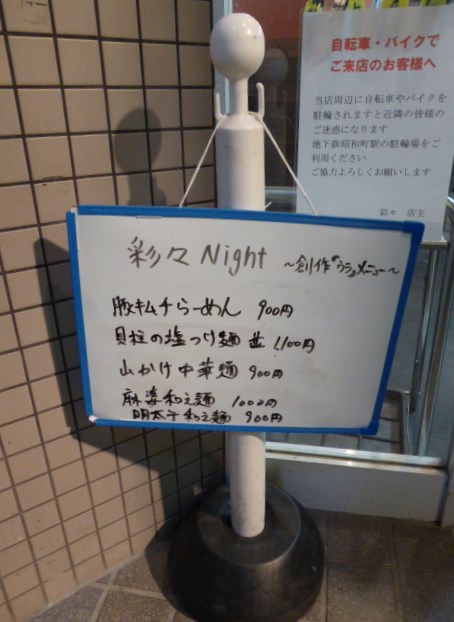 自転車・バイクで
ご来店のお客様へ
当店周辺に自転車やバイクを
駐輪されますと近隣の皆様の
ご迷惑になります
地下鉄昭和町駅の駐輪場をご
利用ください
ご協力よろしくお願いします
彩々 店主
彩々 Night
～創作"ウラ"メニュー～
豚キムチらーめん 900円
貝柱の塩つけ麺 並 1,100円
山かけ中華麺 900円
麻婆和え麺 1000円
明太子和え麺 900円